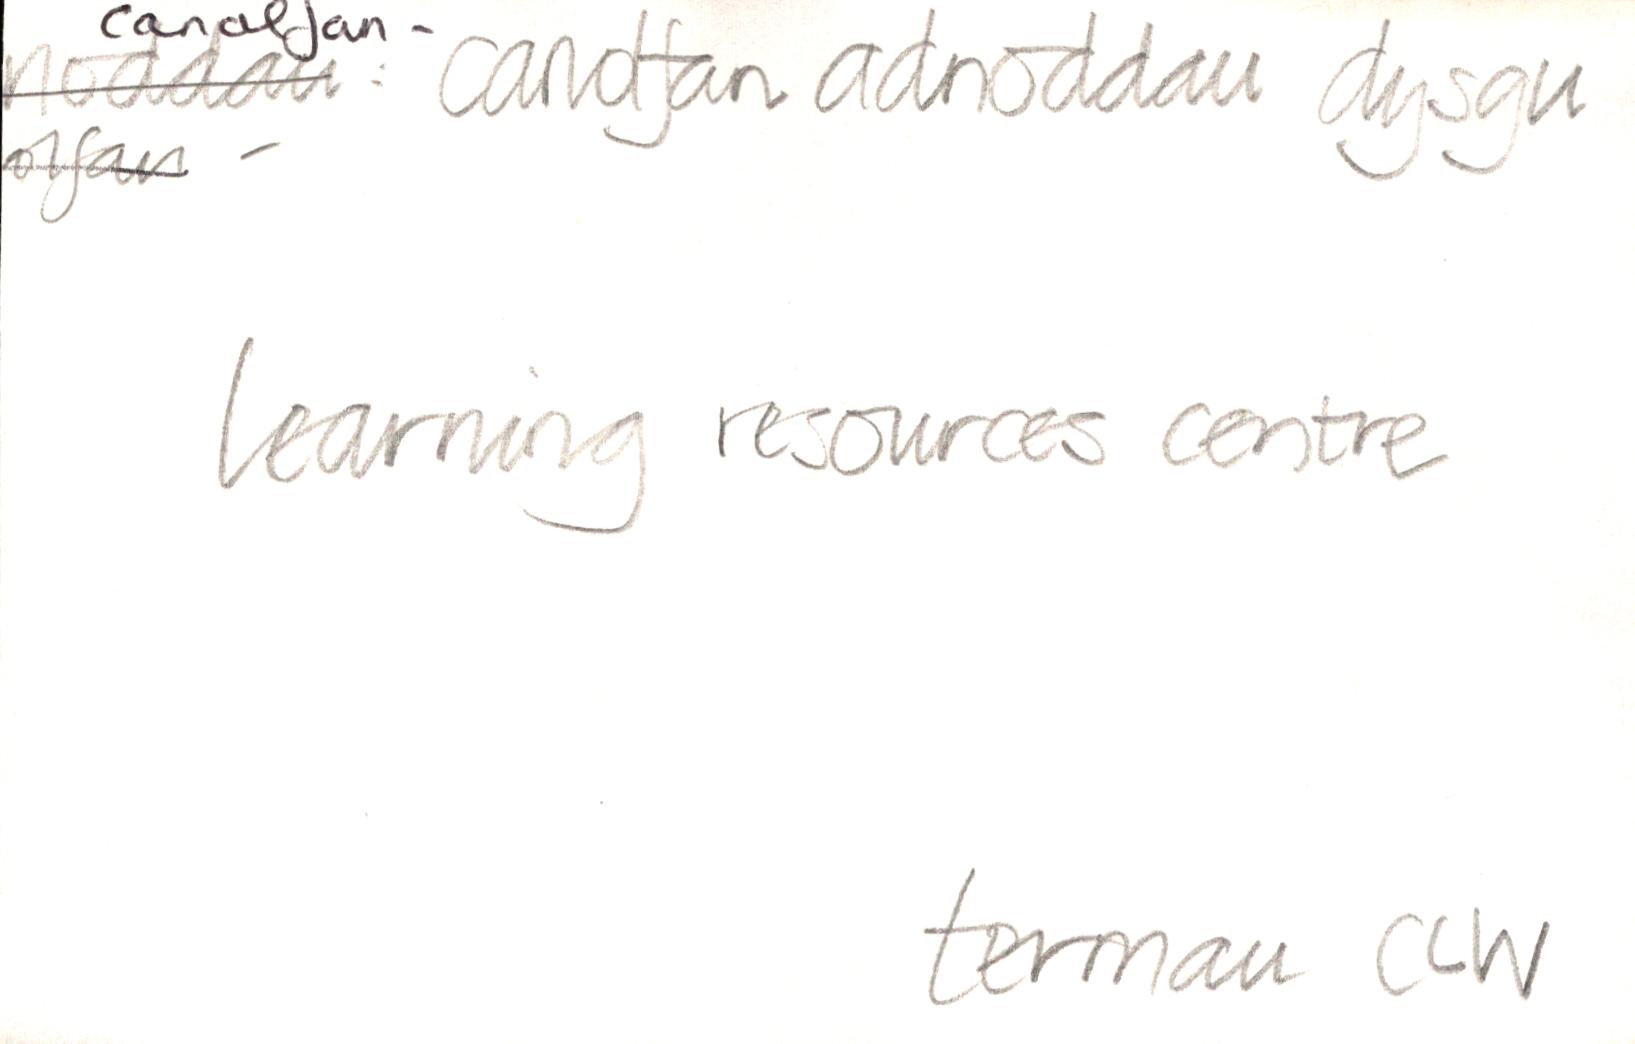 canolfan -
noddau : canolfan adnoddau dysgu
olfan -
learning resources centre
termau CLlW